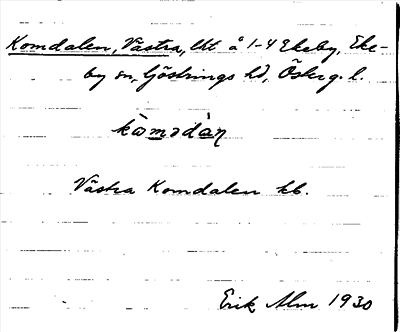 Komdalen, Västra, lht å 1-4 Ekeby, Eke-
by sn, Göstrings hd, Österg. l.
kòmədàn
Västra Komdalen kb.
Erik Alm 1930